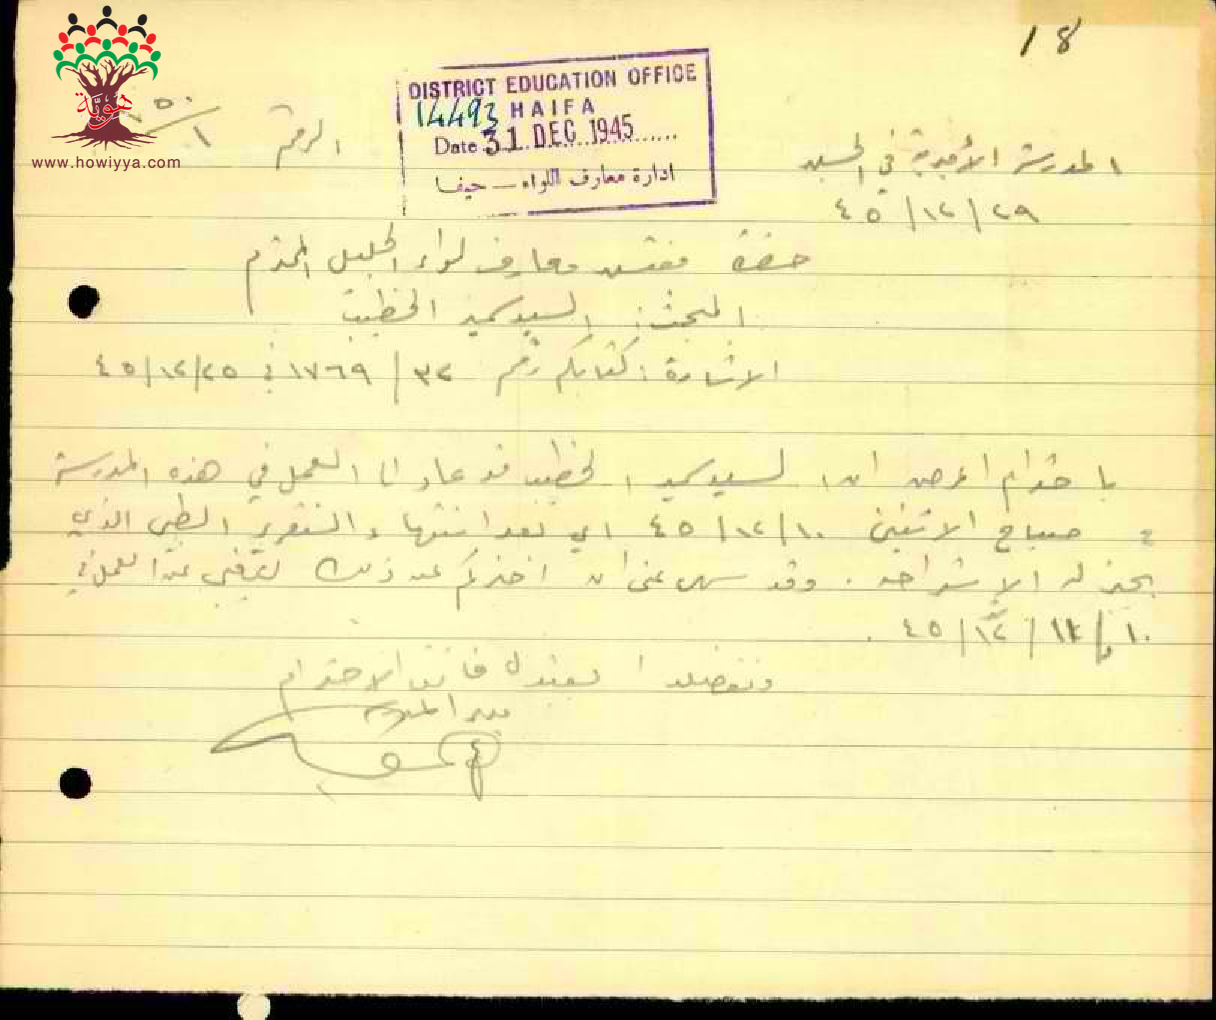 18
هوية
www.howiyya.com
DISTRICT EDUCATION OFFICE
14493 HAIFA
Date 31 DEC 1945
ادارة معارف اللواء - حيفا
الرقم
المدرسة الأميرية في
٢٩/١٢/٤٥
حضرة مفتش معارف لواء الجليل المحترم
المبحث: السيد سميد الخطيب
الاشارة: كتابكم رقم ٣٢/١٧٦٩ في ٢٥/١٢/٤٥
باحترام اعرض ان السيد سميد الخطيب قد عاد الى العمل في هذه المدرسة
صباح الاثنين ١٠/١٢/٤٥ اي بعد انتهاء التقرير الطبي الذي
يجيز له الاستراحة. وقد سهى عني ان اخبركم عن ذلك لتغيبي عن العمل في
١٠/١٢/٤٥.
وتفضلوا بقبول فائق الاحترام
مدير المدرسة